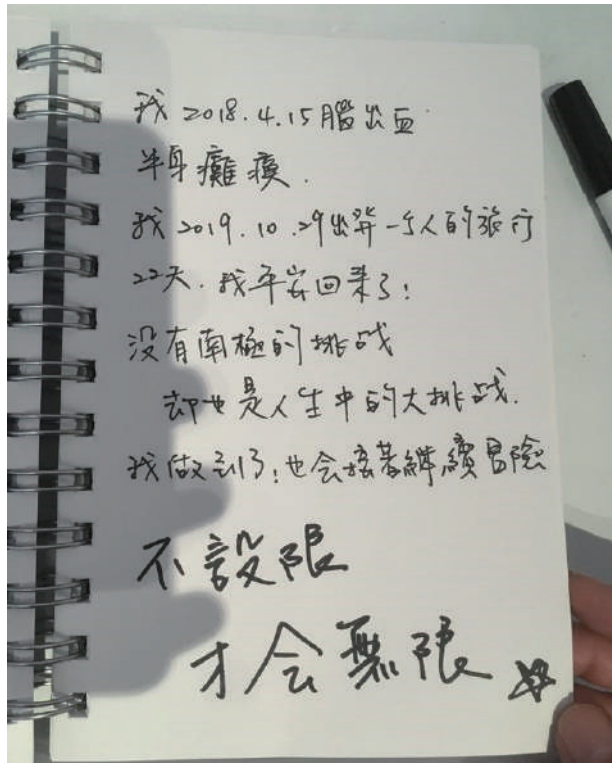 我 2018.4.15 腦出血
半身癱瘓.
我 2019.10.29 出發一个人的旅行
22天.我平安回来了!
没有南極的挑战
却也是人生中的大挑战.
我做到了;也会接著継續冒險
不設限
才会無限